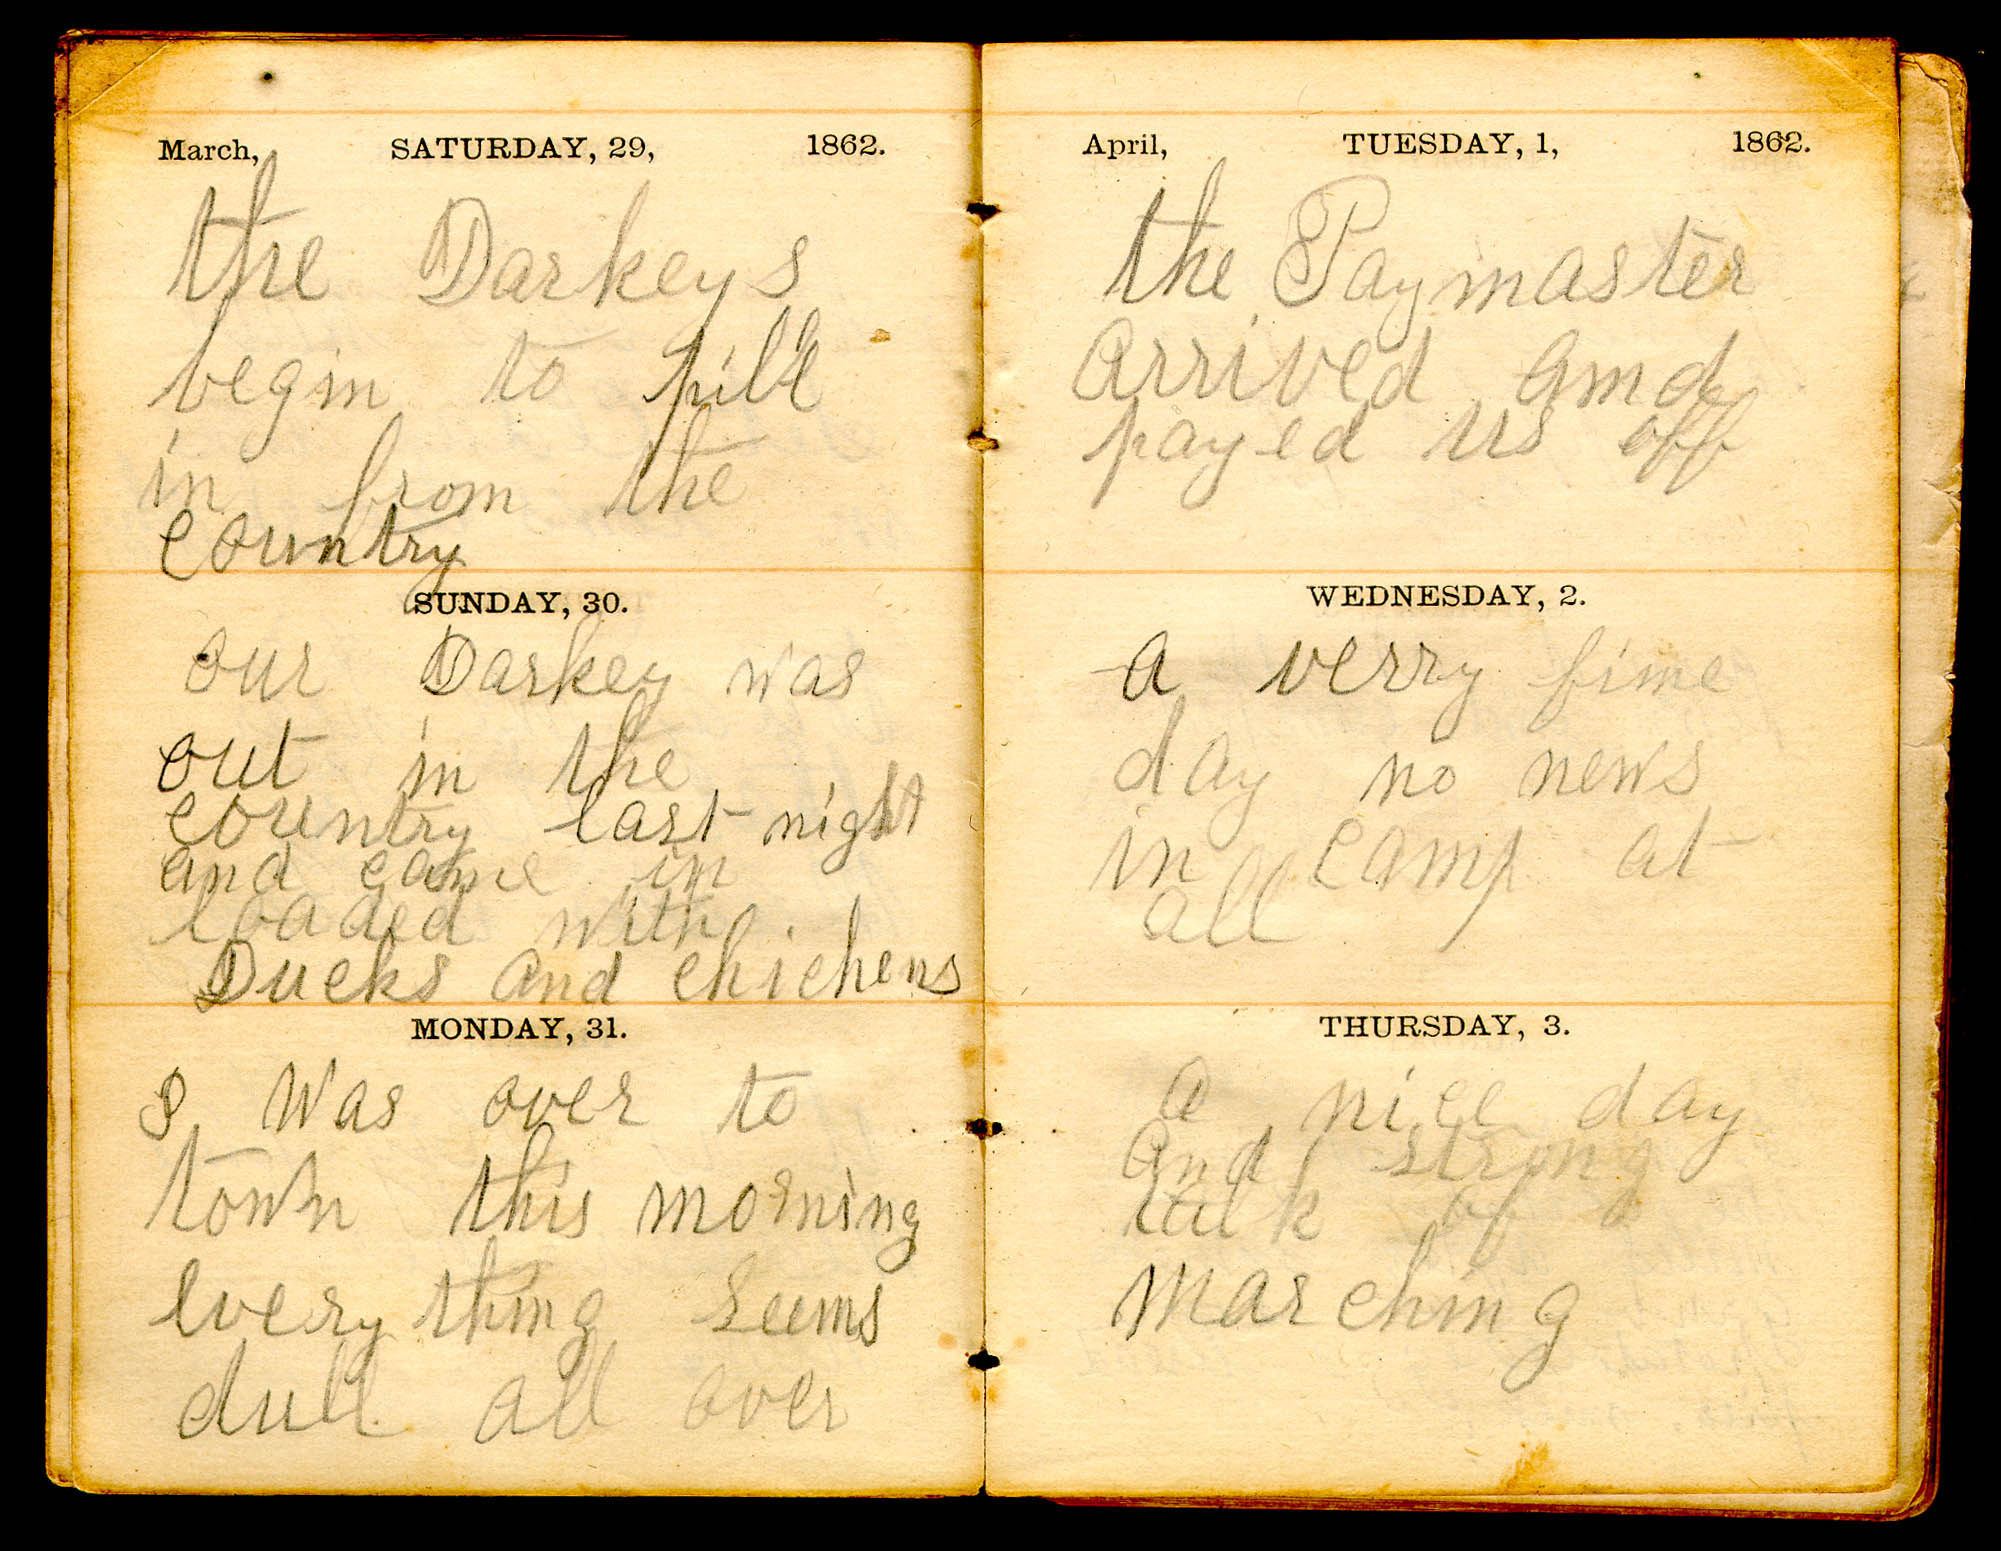 March, SATURDAY, 29, 1862.
the Darkeys
begin to pile
in from the
country
SUNDAY, 30.
our Darkey was
out in the
country last night
and came in
loaded with
Ducks and chichens
MONDAY, 31.
I was over to
town this morning
every thing seems
dull all over
April, TUESDAY, 1, 1862.
the Paymaster
Arrived and
payed us off
WEDNESDAY, 2.
a verry fine
day no news
in camp at
all
THURSDAY, 3.
a nice day
and strong
talk of
marching